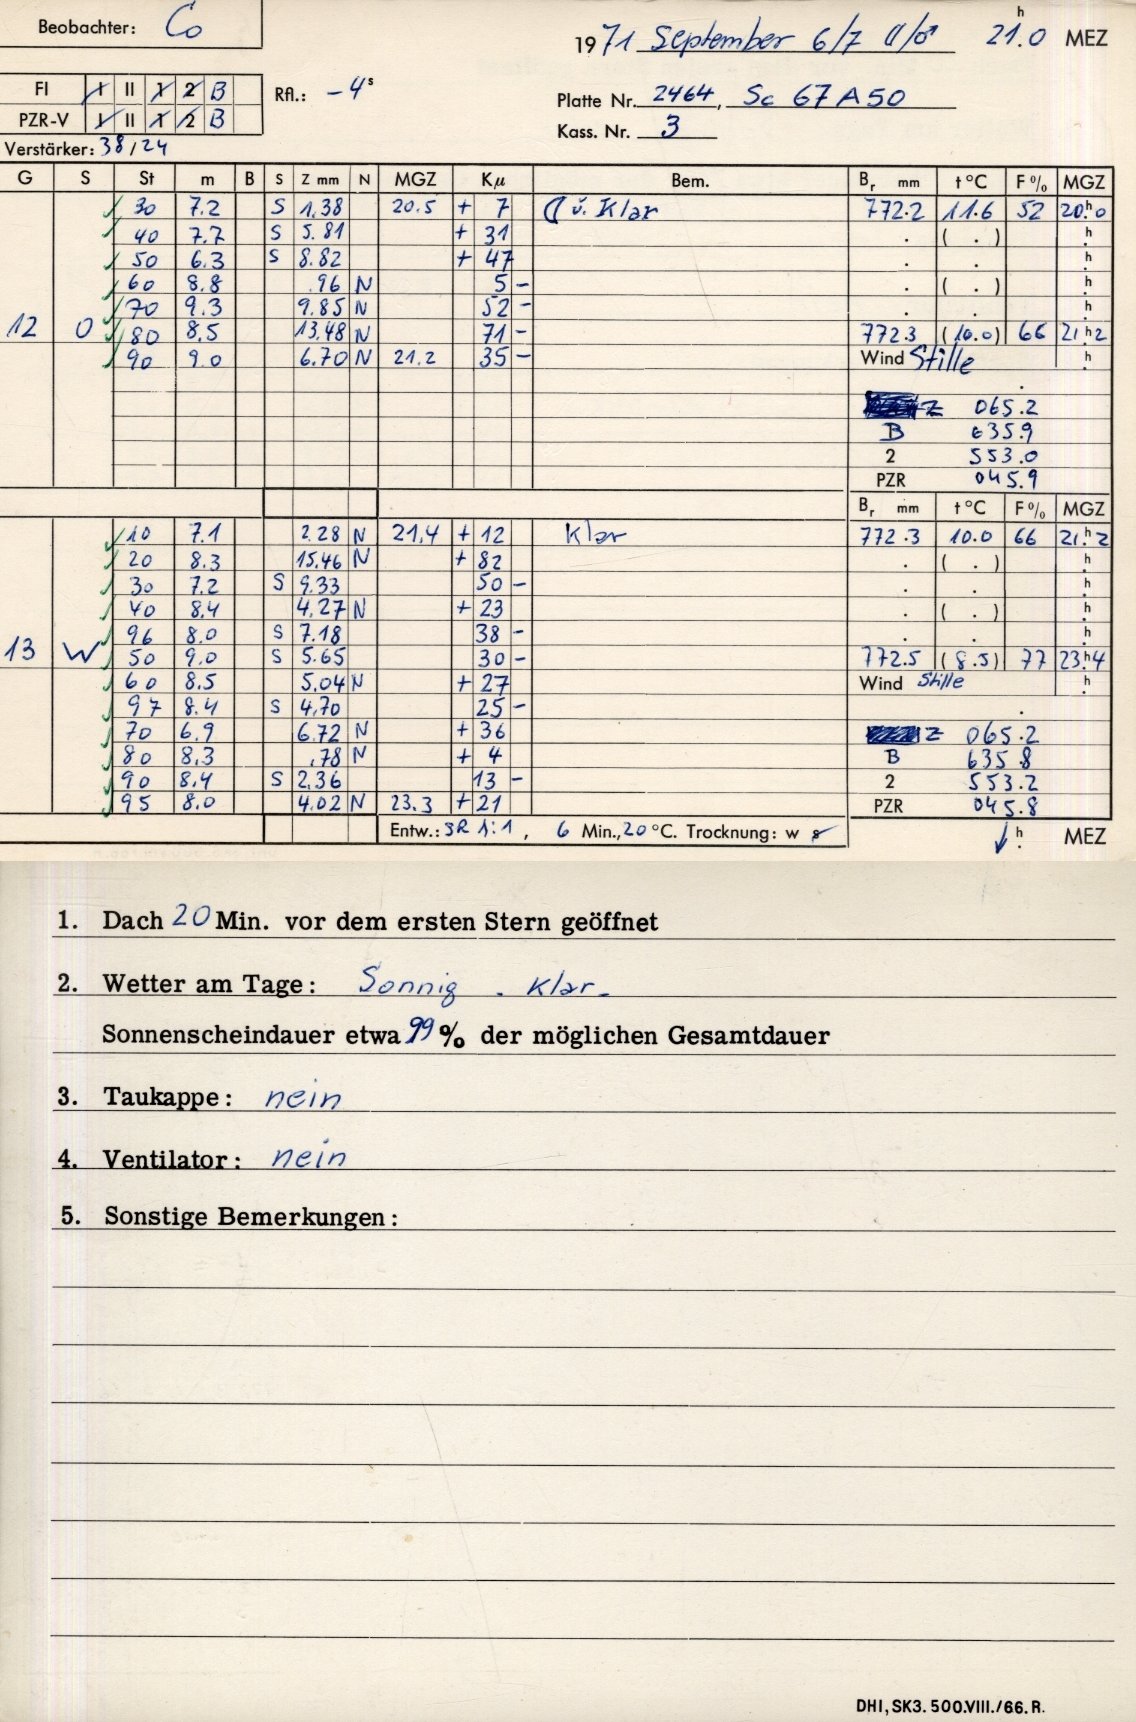 Beobachter: Co
1971 September 6/7 ☾/♂ 21.ʰ0 MEZ
FI I II 1 2 B
Rfl.: -4ˢ
PZR-V I II 1 2 B
Platte Nr. 2464, Sc 67 A 50
Kass. Nr. 3
Verstärker: 38/24
G S St m B S Z mm N MGZ Kμ Bem. Bᵣ mm t °C F % MGZ
30 7.2 S 1.38 20.5 + 7 ☾ ü. Klar 772.2 11.6 52 20.ʰ0
40 7.7 S 5.81 + 31 . ( . ) ʰ.
50 6.3 S 8.82 + 47 . . ʰ.
60 8.8 .96 N 5 - . ( . ) ʰ.
70 9.3 9.85 N 52 - . . ʰ.
12 O 80 8.5 13.48 N 71 - 772.3 (10.0) 66 21.ʰ2
90 9.0 6.70 N 21.2 35 - Wind Stille ʰ.
Z 065.2
B 635.9
2 553.0
PZR 045.9
Bᵣ mm t °C F % MGZ
10 7.1 2.28 N 21.4 + 12 Klar 772.3 10.0 66 21.ʰ2
20 8.3 15.46 N + 82 . ( . ) ʰ.
30 7.2 S 9.33 50 - . . ʰ.
40 8.4 4.27 N + 23 . ( . ) ʰ.
96 8.0 S 7.18 38 - . . ʰ.
13 W 50 9.0 S 5.65 30 - 772.5 (8.5) 77 23.ʰ4
60 8.5 5.04 N + 27 Wind Stille ʰ.
97 8.4 S 4.70 25 -
70 6.9 6.72 N + 36 Z 065.2
80 8.3 .78 N + 4 B 635.8
90 8.4 S 2.36 13 - 2 553.2
95 8.0 4.02 N 23.3 + 21 PZR 045.8
Entw.: 3R 1:1, 6 Min., 20 °C. Trocknung: w s ↓ ʰ. MEZ
1. Dach 20 Min. vor dem ersten Stern geöffnet
2. Wetter am Tage: Sonnig . Klar.
Sonnenscheindauer etwa 99 % der möglichen Gesamtdauer
3. Taukappe: nein
4. Ventilator: nein
5. Sonstige Bemerkungen:
DHI, SK3. 500.VIII./66. R.